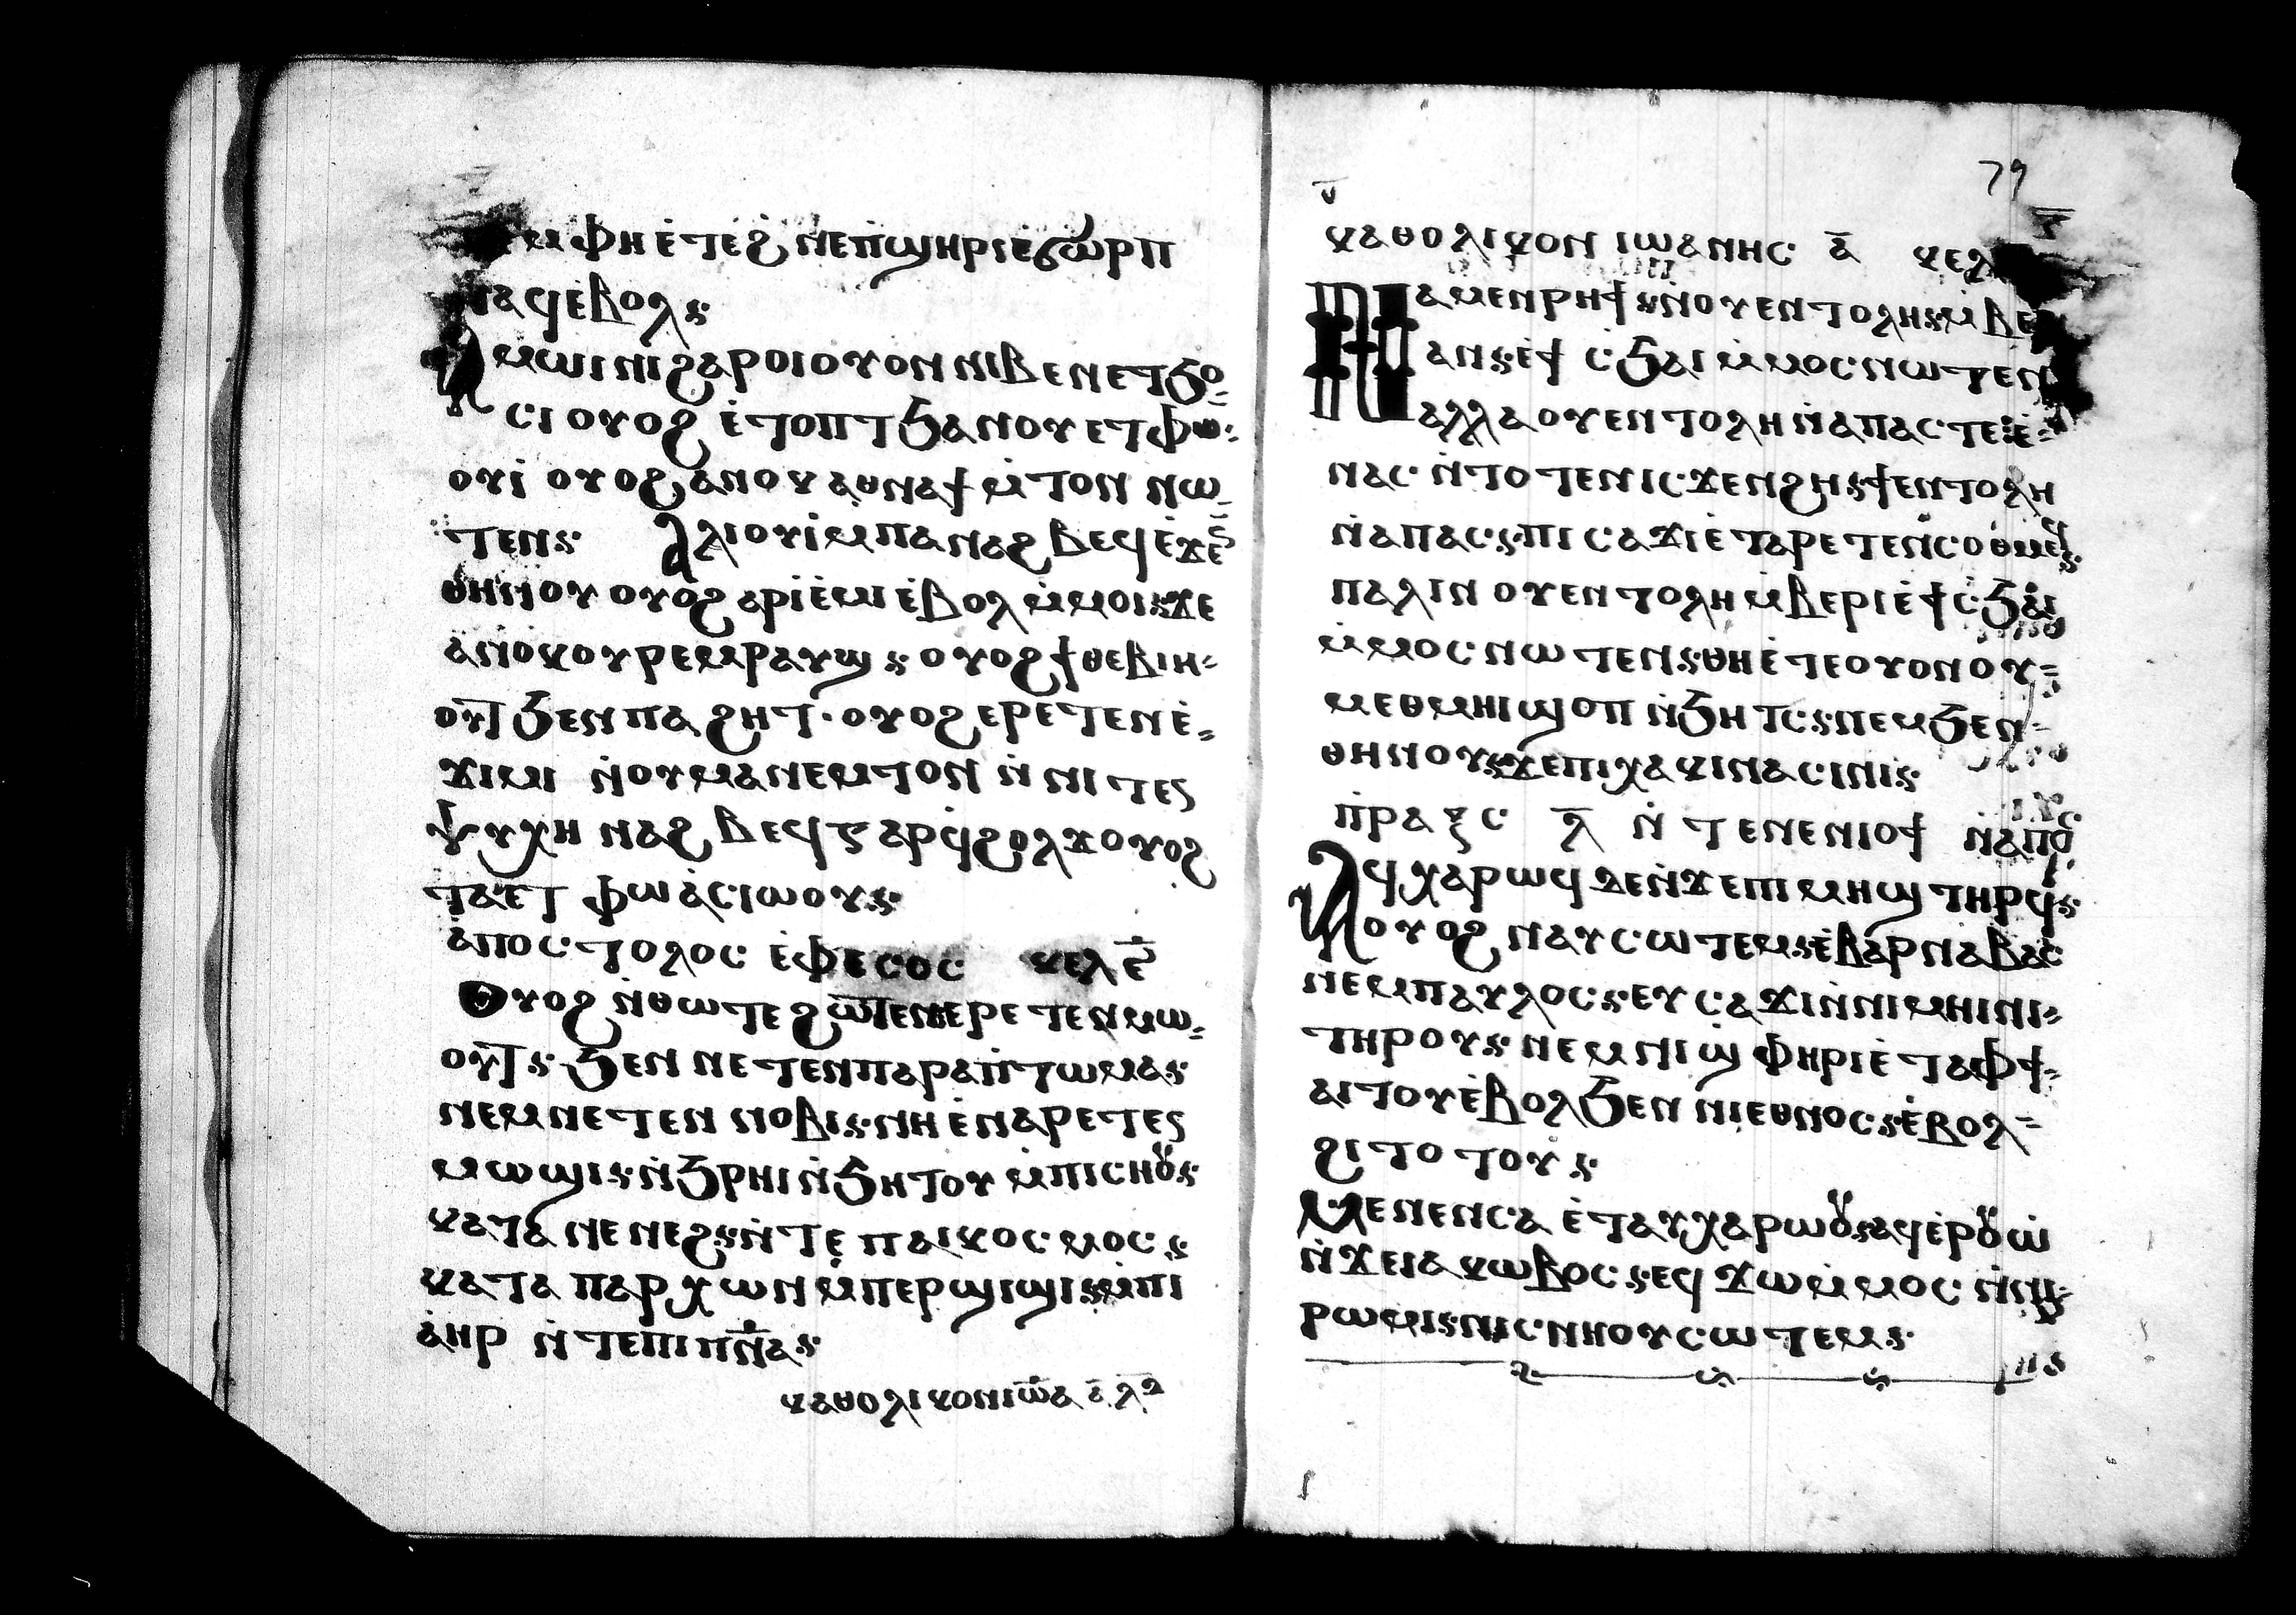 ⲙⲫⲏ ⲉ̇ⲧⲉϩⲛⲉⲡ̇ϣⲏⲣⲓ ⲉ̇ϭⲱⲣⲡ
ⲛⲁϥ ⲉ̇ⲃⲟⲗ⳾
ⲁⲙⲱⲓⲛⲓ ϩⲁⲣⲟⲓ ⲟⲩⲟⲛ ⲛⲓⲃⲉⲛ ⲉⲧϧⲟ
ⲥⲓ ⲟⲩⲟϩ ⲉ̇ⲧⲟⲡⲧ ϧⲁ ⲛⲟⲩⲉⲧⲫⲱ
ⲟⲩⲓ̇ ⲟⲩⲟϩ ⲁⲛⲟⲕ ⲉⲑⲛⲁϯ ⲙ̇ⲧⲟⲛ ⲛⲱ
ⲧⲉⲛ⳾ ⲁⲗⲓⲟⲩⲓ̇ ⲙⲡⲁⲛⲁϩⲃⲉϥ ⲉ̇ϫⲉⲛ
ⲑⲏⲛⲟⲩ ⲟⲩⲟϩ ⲁⲣⲓⲉ̇ⲙⲓ ⲉ̇ⲃⲟⲗ ⲙ̇ⲙⲟⲓ⳾ϫⲉ
ⲁⲛⲟⲕ ⲟⲩⲣⲉⲙⲣⲁⲩϣ⳾ ⲟⲩⲟϩ ϯⲑⲉⲃⲓⲏ
ⲟⲩⲧ ϧⲉⲛ ⲡⲁϩⲏⲧ· ⲟⲩⲟϩ ⲉⲣⲉⲧⲉⲛⲉ̇
ϫⲓⲙⲓ ⲛ̇ⲟⲩⲙⲁⲛⲉⲙⲧⲟⲛ ⲛ̇ⲛⲓⲧⲉⲛ
ⲯⲩⲭⲏ ⲛⲁϩⲃⲉϥ ⲅⲁⲣ ϥ̇ϩⲟⲗϫ ⲟⲩⲟϩ
ⲧⲁⲉⲧⲫⲱ ⲁ̇ⲥⲓⲱⲟⲩ⳾
ⲁ̇ⲡⲟⲥⲧⲟⲗⲟⲥ ⲉ̇ⲫⲉⲥⲟⲥ ⲕⲉⲗ ⲉ̅
ⲟⲩⲟϩ ⲛ̇ⲑⲱⲧⲉ ϩⲱⲧⲉⲛ ⲉⲣⲉⲧⲉⲛⲙⲱ
ⲟⲩⲧ⳾ ϧⲉⲛ ⲛⲉⲧⲉⲛⲡⲁⲣⲁⲡ̇ⲧⲱⲙⲁ⳾
ⲛⲉⲙ ⲛⲉⲧⲉⲛ ⲛⲟⲃⲓ⳾ ⲛⲏ ⲉ̇ⲛⲁⲣⲉⲧⲉⲛ
ⲙⲟϣⲓ⳾ ⲛ̇ϧⲣⲏⲓ ⲛ̇ϧⲏⲧⲟⲩ ⲙ̇ⲡⲓⲥⲏⲟⲩ⳾
ⲕⲁⲧⲁ ⲛⲉⲛⲉϩ⳾ ⲛ̇ⲧⲉ ⲡⲁⲓⲕⲟⲥⲙⲟⲥ⳾
ⲕⲁⲧⲁ ⲡⲁⲣⲭⲱⲛ ⲙ̇ⲡⲉⲣϣⲓϣⲓ⳾ ⲙ̇ⲡⲓ
ⲁ̇ⲏⲣ ⲛ̇ⲧⲉⲡⲓⲡ̅ⲛ̅ⲁ⳾
ⲕⲁⲑⲟⲗⲓⲕⲟⲛ ⲓⲱ̅ⲁ ⲁ̅
79
ⲕⲁⲑⲟⲗⲓⲕⲟⲛ ⲓⲱⲁⲛⲏⲥ ⲁ̅ ⲕⲉⲗ
ⲛⲁⲙⲉⲛⲣⲏϯ⳾ ⲛ̇ⲟⲩⲉⲛⲧⲟⲗⲏ⳾ ⲙ̇ⲃⲉ
ⲁⲛ⳾ ⲉ̇ϯⲥ̇ϧⲁⲓ ⲙ̇ⲙⲟⲥ ⲛⲱⲧⲉⲛ
ⲁⲗⲗⲁ ⲟⲩⲉⲛⲧⲟⲗⲏ ⲛ̇ⲁⲡⲁⲥ ⲧⲉ⳾ ⲉ̇
ⲛⲁⲥ ⲛ̇ⲧⲟⲧⲉⲛ ⲓⲥϫⲉⲛ ϩⲏ⳾ ϯⲉⲛⲧⲟⲗⲏ
ⲛ̇ⲁⲡⲁⲥ⳾ ⲡⲓⲥⲁϫⲓ ⲉ̇ⲧⲁⲣⲉⲧⲉⲛⲥⲟⲑⲙⲉϥ⳾
ⲡⲁⲗⲓⲛ ⲟⲩⲉⲛⲧⲟⲗⲏ ⲙ̇ⲃⲉⲣⲓ ⲉ̇ϯⲥ̇ϧⲁⲓ
ⲙ̇ⲙⲟⲥ ⲛⲱⲧⲉⲛ⳾ ⲑⲏ ⲉ̇ⲧⲉ ⲟⲩⲟⲛ ⲟⲩ
ⲙⲉⲑⲙⲏⲓ ϣⲟⲡ ⲛ̇ϧⲏⲧⲥ⳾ ⲛⲉⲙ ϧⲉⲛ
ⲑⲏⲛⲟⲩ⳾ ϫⲉ ⲡⲓⲭⲁⲕⲓ ⲛⲁⲥⲓⲛⲓ⳾
ⲡ̇ⲣⲁⲝⲥ ⲗ̅ ⲛ̇ⲧⲉⲛⲉⲛⲓⲟϯ ⲛ̇ⲁⲡⲟⲥ
ⲁϥⲭⲁⲣⲱϥ ⲇⲉ ⲛ̇ϫⲉ ⲡⲓⲙⲏϣ ⲧⲏⲣϥ⳾
ⲟⲩⲟϩ ⲛⲁⲩⲥⲱⲧⲉⲙ⳾ ⲉ̇ⲃⲁⲣⲛⲁⲃⲁⲥ
ⲛⲉⲙ ⲡⲁⲩⲗⲟⲥ⳾ ⲉⲩⲥⲁϫⲓ ⲛ̇ⲛⲓⲙⲏⲓⲛⲓ
ⲧⲏⲣⲟⲩ⳾ ⲛⲉⲙ ⲛⲓϣ̇ⲫⲏⲣⲓ ⲉ̇ⲧⲁⲫϯ
ⲁⲓⲧⲟⲩ ⲉ̇ⲃⲟⲗ ϧⲉⲛ ⲛⲓⲉⲑⲛⲟⲥ⳾ ⲉ̇ⲃⲟⲗ
ϩⲓⲧⲟⲧⲟⲩ⳾
ⲙⲉⲛⲉⲛⲥⲁ ⲉ̇ⲧⲁⲩⲭⲁⲣⲱⲟⲩ⳾ ⲁϥⲉ̇ⲣⲟⲩⲱ̇
ⲛ̇ϫⲉ ⲓⲁⲕⲱⲃⲟⲥ⳾ ⲉϥϫⲱ ⲙ̇ⲙⲟⲥ ⲛ̇ⲛⲓ
ⲣⲱⲙⲓ⳾ ⲛⲓⲥⲛⲏⲟⲩ ⲥⲱⲧⲉⲙ⳾